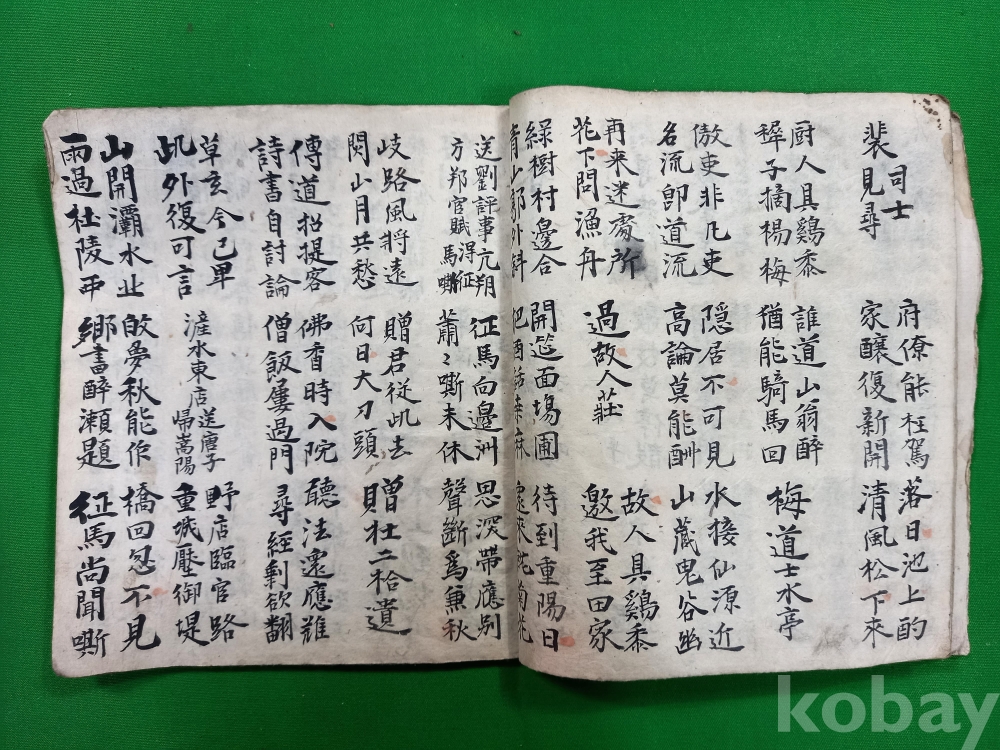 裴司士見尋
府僚能枉駕
家釀復新開
落日池上酌
清風松下來
厨人具鷄黍
稺子摘楊梅
誰道山翁醉
猶能騎馬回
梅道士水亭
傲吏非凡吏
名流即道流
隱居不可見
高論莫能酬
水接仙源近
山藏鬼谷幽
再来迷處所
花下問漁舟
過故人莊
故人具鷄黍
邀我至田家
綠樹村邊合
青山郭外斜
開筵面場圃
把酒話桑麻
待到重陽日
還來就菊花
送劉評事亢朔
方郑官賦得征馬嘶
征馬向邊洲
蕭〻嘶未休
思深帶應別
聲斷爲兼秋
岐路風將遠
関山月共愁
贈君従此去
何日大刀頭
贈杜二拾遺
傳道招提客
詩書自討論
佛香時入院
僧飯屢過門
聽法還應難
尋經剩欲翻
草玄今已畢
此外復可言
滻水東店送唐子歸嵩陽
野店臨官路
重城壓御堤
山開灞水北
雨過杜陵西
故夢秋能作
鄉書醉瀬題
橋回忽不見
征馬尚聞嘶
kobay